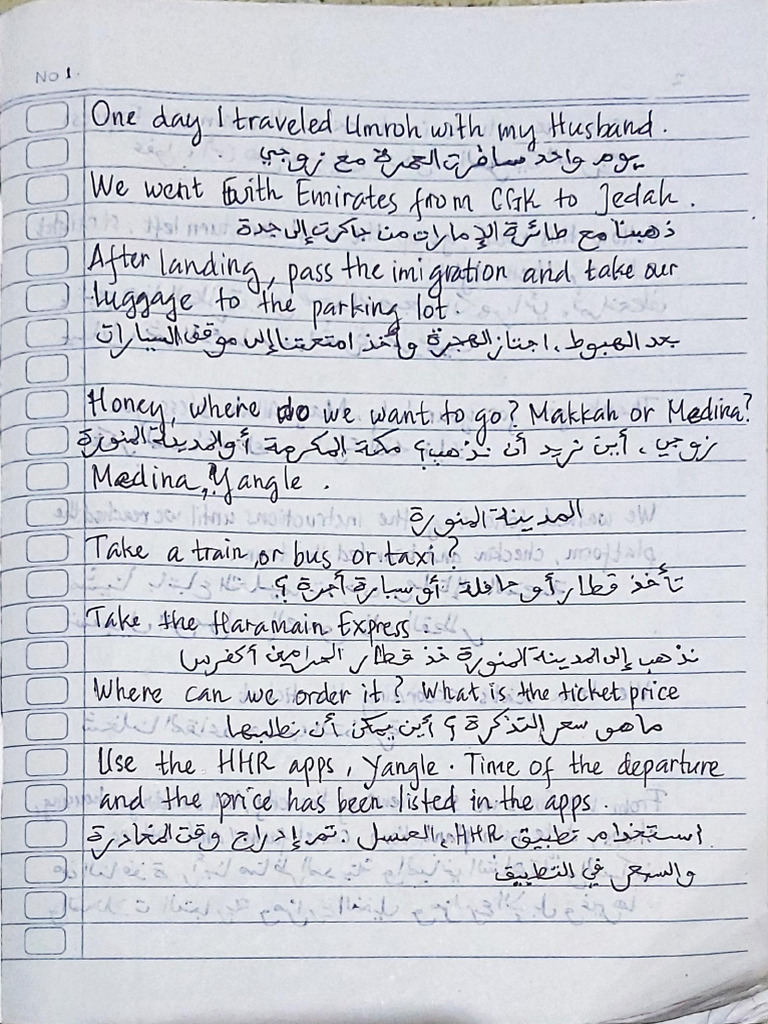 No 1.
One day I traveled Umroh with my Husband.
يوم واحد سافرت العمرة مع زوجي.
We went with Emirates from CGK to Jedah.
ذهبنا مع طائرة الإمارات من جاكرت إلى جدة
After landing, pass the imigration and take our
luggage to the parking lot.
بعد الهبوط، اجتاز الهجرة وأخذ امتعتنا إلى موقف السيارات
Honey, where do we want to go? Makkah or Medina?
زوجي، أين نريد أن نذهب؟ مكة المكرمة أو المدينة المنورة
Medina, Yangle.
المدينة المنورة
Take a train, or bus or taxi?
تأخذ قطار أو حافلة أو سيارة أجرة؟
Take the Haramain Express.
نذهب إلى المدينة المنورة خذ قطار الحرامين أكفرس
Where can we order it? What is the ticket price
ما هو سعر التذكرة؟ أين يمكن أن نطلبها
Use the HHR apps, Yangle. Time of the departure
and the price has been listed in the apps.
استخدام تطبيق HHR، العسل. تم إدراج وقت المغادرة
والسعر في التطبيق